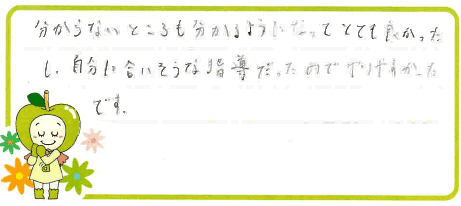 分からないところも分かるようになってとても良かった
し、自分に合いそうな指導だったのでやりやすかった
です。